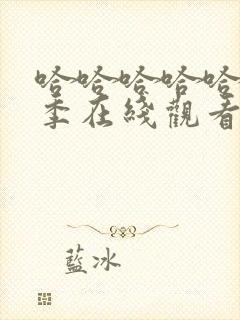 哈哈哈哈哈
季在綫觀看
藍冰